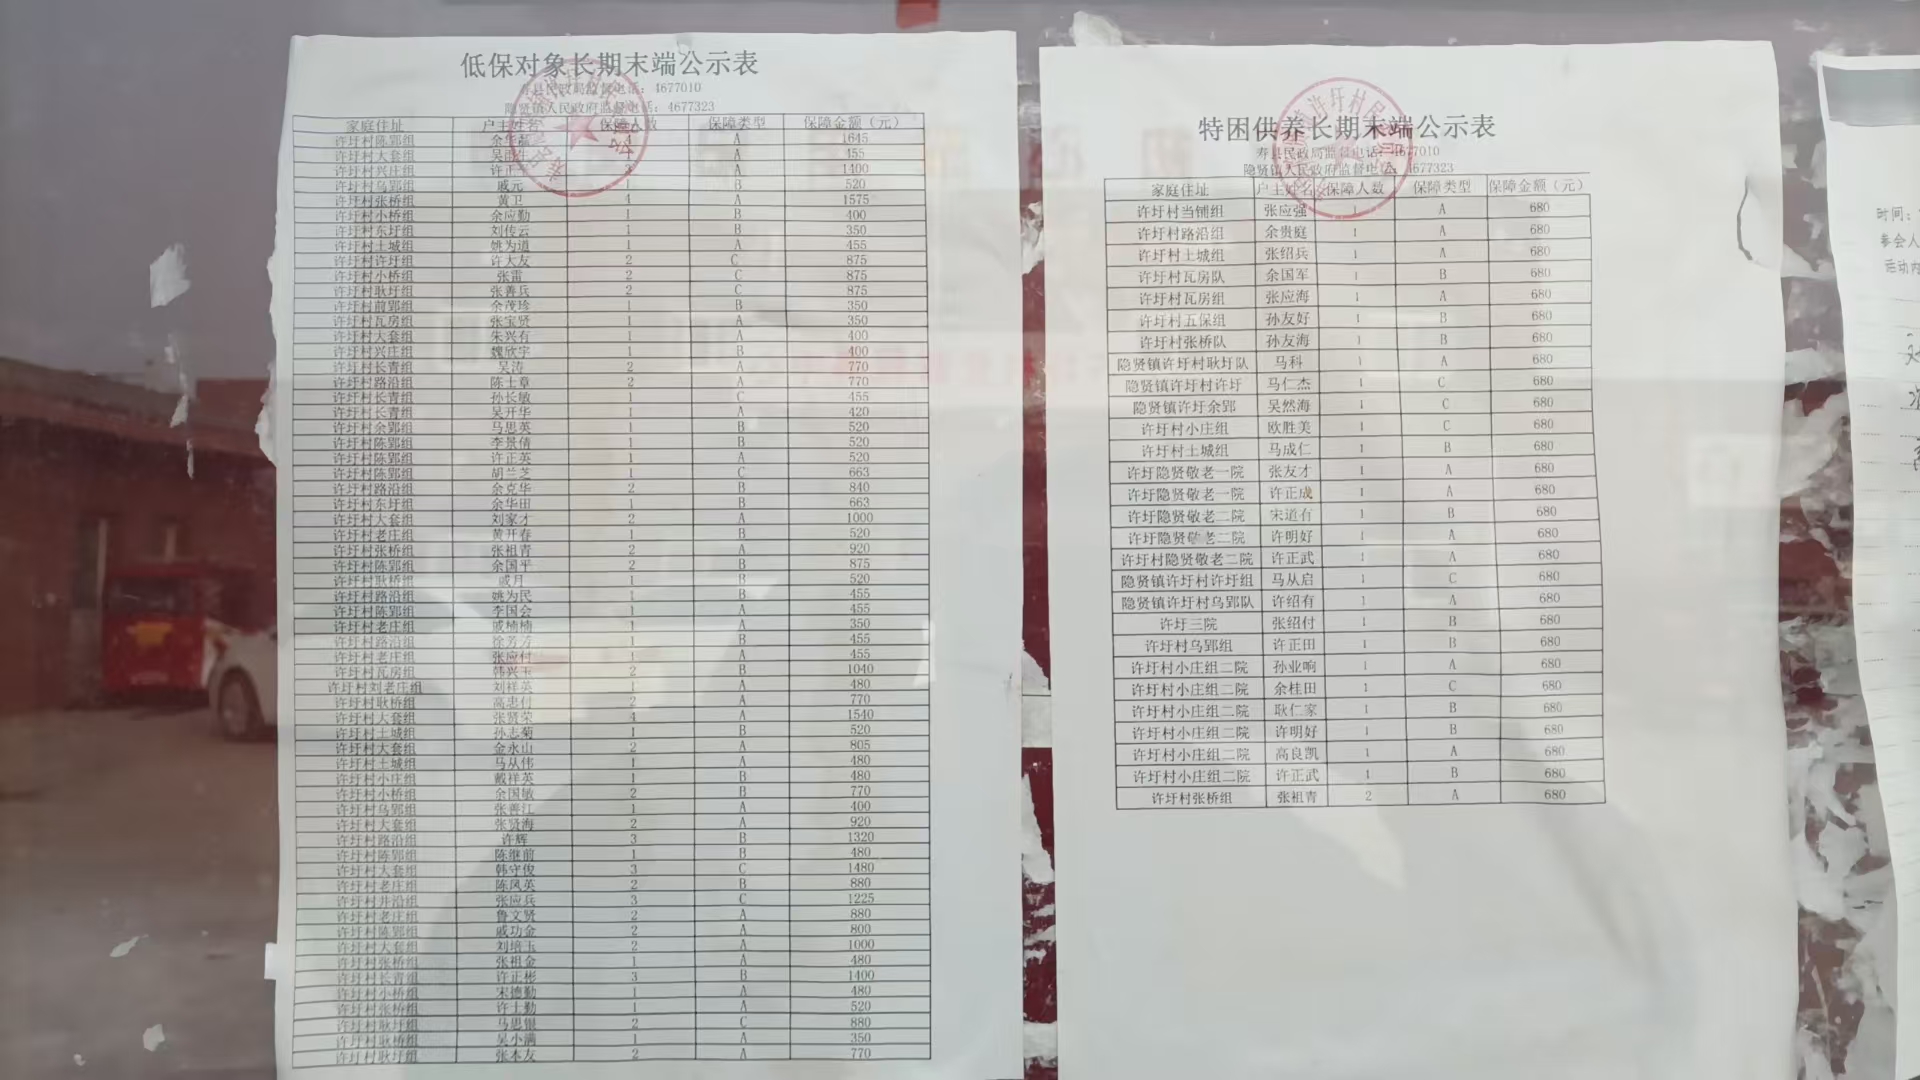 低保对象长期末端公示表
寿县民政局监督电话：4677010
隐贤镇人民政府监督电话：4677323
家庭住址 户主姓名 保障人数 保障类型 保障金额（元）
许圩村陈郢组 余华磊 A 1645
许圩村大套组 A 455
许圩村兴庄组 A 1400
许圩村乌郢组 戚元 1 B 520
许圩村张桥组 黄卫 4 A 1575
许圩村小桥组 余应勤 1 B 400
许圩村东圩组 刘传云 1 B 350
许圩村土城组 姚为道 1 A 455
许圩村许圩组 许大友 2 C 875
许圩村小桥组 张雷 2 C 875
许圩村耿圩组 张善兵 2 C 875
许圩村前郢组 余茂珍 1 B 350
许圩村瓦房组 张宝贤 1 A 350
许圩村大套组 朱兴有 1 A 400
许圩村兴庄组 魏欣宇 1 B 400
许圩村长青组 吴涛 2 A 770
许圩村路沿组 陈士章 2 A 770
许圩村长青组 孙长敏 1 C 455
许圩村长青组 吴开华 1 A 420
许圩村余郢组 马思英 1 B 520
许圩村陈郢组 李景倩 1 B 520
许圩村陈郢组 许正英 1 A 520
许圩村陈郢组 胡兰芝 1 C 663
许圩村路沿组 余克华 2 B 840
许圩村东圩组 余华田 1 B 663
许圩村大套组 刘家才 2 A 1000
许圩村老庄组 黄开春 1 B 520
许圩村张桥组 张祖青 2 A 920
许圩村陈郢组 余国平 2 B 875
许圩村耿桥组 戚月 1 B 520
许圩村路沿组 姚为民 1 B 455
许圩村陈郢组 李国会 1 A 455
许圩村老庄组 戚楠楠 1 A 350
许圩村路沿组 徐芳芳 1 B 455
许圩村老庄组 张应付 1 A 455
许圩村瓦房组 韩兴玉 2 B 1040
许圩村刘老庄组 刘祥英 1 A 480
许圩村耿桥组 高忠付 2 A 770
许圩村大套组 张贤荣 4 A 1540
许圩村土城组 孙志菊 1 B 520
许圩村大套组 金永山 2 A 805
许圩村土城组 马从伟 1 A 480
许圩村小庄组 戴祥英 1 B 480
许圩村小桥组 余国敏 2 B 770
许圩村乌郢组 张善江 1 A 400
许圩村大套组 张贤海 2 A 920
许圩村路沿组 许辉 3 B 1320
许圩村陈郢组 陈继前 1 B 480
许圩村大套组 韩守俊 3 C 1480
许圩村老庄组 陈凤英 2 B 880
许圩村井沿组 张应兵 3 C 1225
许圩村老庄组 鲁文贤 2 A 880
许圩村陈郢组 戚功金 2 A 800
许圩村大套组 刘培玉 2 A 1000
许圩村张桥组 张祖金 1 A 480
许圩村长青组 许正彬 3 B 1400
许圩村小桥组 宋德勤 1 A 480
许圩村张桥组 许士勤 1 A 520
许圩村耿圩组 马思银 2 C 880
许圩村耿桥组 吴小满 1 A 350
许圩村耿圩组 张本友 2 A 770
特困供养长期末端公示表
寿县民政局监督电话：4677010
隐贤镇人民政府监督电话：4677323
家庭住址 户主姓名 保障人数 保障类型 保障金额（元）
许圩村当铺组 张应强 1 A 680
许圩村路沿组 余贵庭 1 A 680
许圩村土城组 张绍兵 1 A 680
许圩村瓦房队 余国军 1 B 680
许圩村瓦房组 张应海 1 A 680
许圩村五保组 孙友好 1 B 680
许圩村张桥队 孙友海 1 B 680
隐贤镇许圩村耿圩队 马科 1 A 680
隐贤镇许圩村许圩 马仁杰 1 C 680
隐贤镇许圩余郢 吴然海 1 C 680
许圩村小庄组 欧胜美 1 C 680
许圩村土城组 马成仁 1 B 680
许圩隐贤敬老一院 张友才 1 A 680
许圩隐贤敬老一院 许正成 1 A 680
许圩隐贤敬老二院 宋道有 1 B 680
许圩隐贤敬老二院 许明好 1 A 680
许圩村隐贤敬老二院 许正武 1 A 680
隐贤镇许圩村许圩组 马从启 1 C 680
隐贤镇许圩村乌郢队 许绍有 1 A 680
许圩三院 张绍付 1 B 680
许圩村乌郢组 许正田 1 B 680
许圩村小庄组二院 孙业响 1 A 680
许圩村小庄组二院 余桂田 1 C 680
许圩村小庄组二院 耿仁家 1 B 680
许圩村小庄组二院 许明好 1 B 680
许圩村小庄组二院 高良凯 1 A 680
许圩村小庄组二院 许正武 1 B 680
许圩村张桥组 张祖青 2 A 680
时间：
参会人
活动内